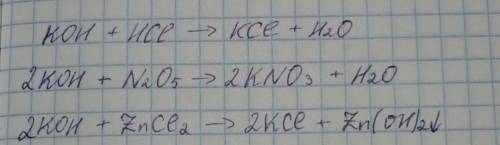 KOH + HCl → KCl + H₂O
2KOH + N₂O₅ → 2KNO₃ + H₂O
2KOH + ZnCl₂ → 2KCl + Zn(OH)₂↓